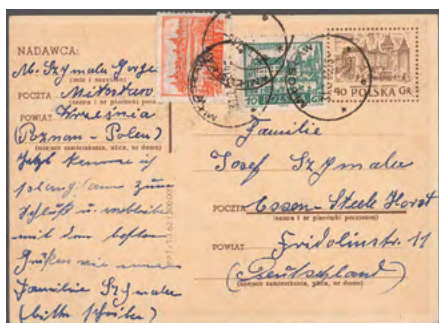 NADAWCA:
M. Szymala Gorge
(imię i nazwisko)
POCZTA Miłosław
(nazwa i nr placówki pocz
POWIAT Września
(Poznan - Polen)
(miejsce zamieszkania, ulica, nr domu)
Jetzt komme ich
zum
Schluß u. verbleibe
mit den besten
Grüßen
Familie Szymala
(bitte schreiben)
70
40 POLSKA GR
Familie
Josef Szymala
POCZTA Essen-Steele Horst
(nazwa i nr placówki pocztowej)
POWIAT Fridolinstr. 11
(Deutschland)
(miejsce zamieszkania, ulica, nr domu)